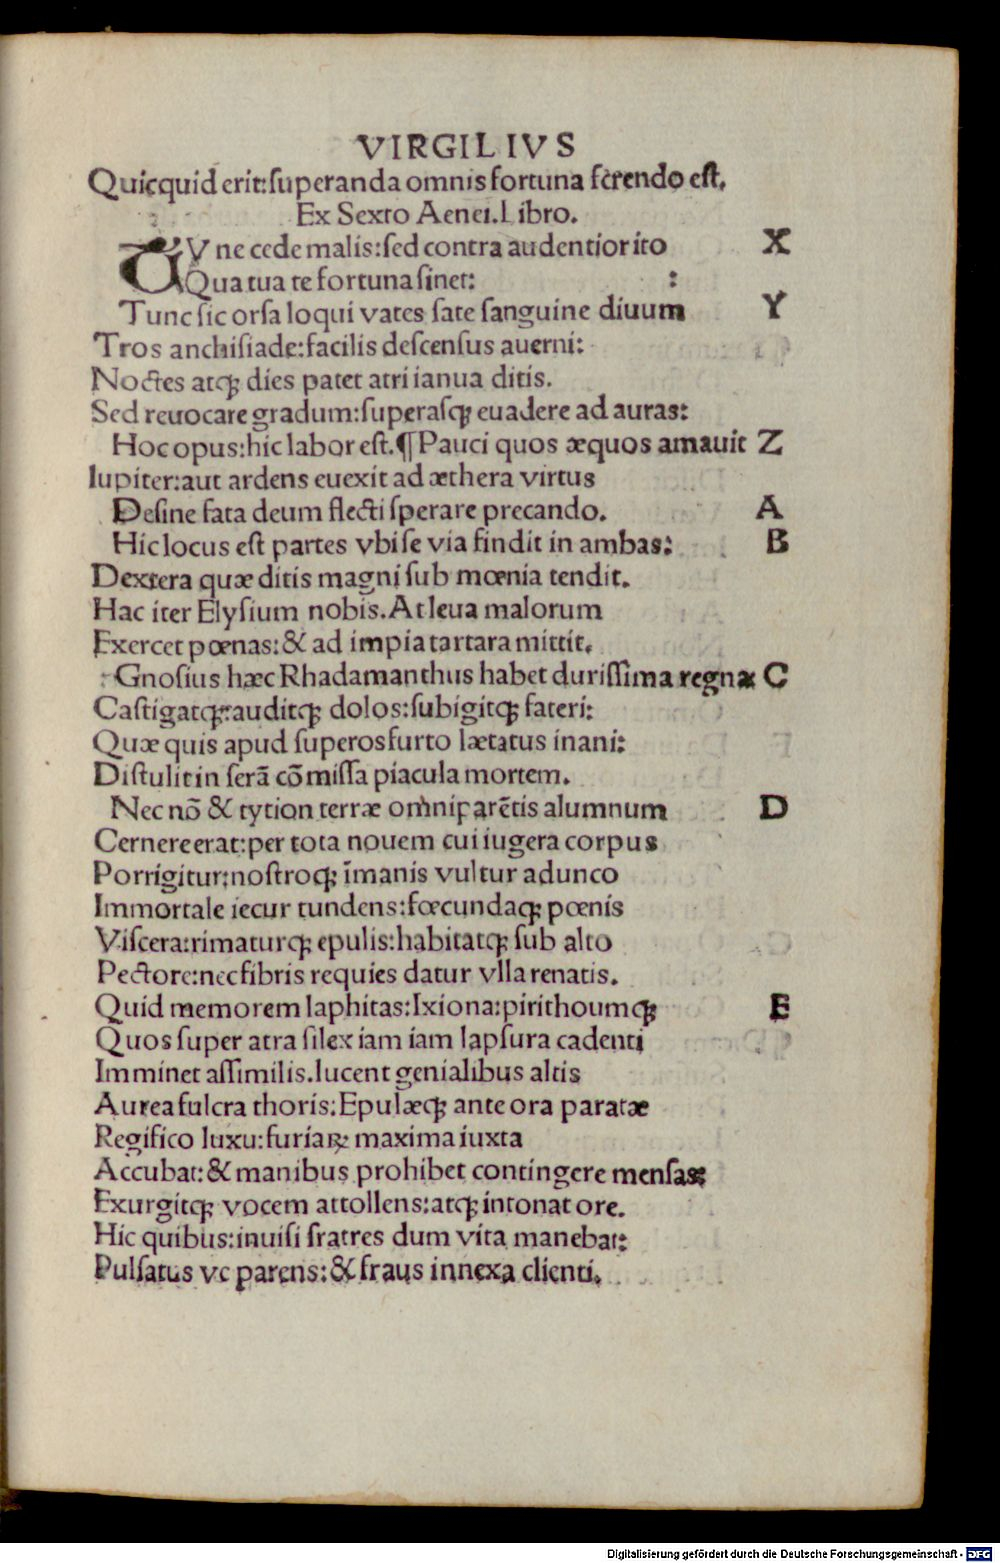 VIRGILIVS
Quicquid erit:ſuperanda omnis fortuna ferendo eſt.
Ex Sexto Aenei.Libro.
TV ne cede malis:ſed contra audentior ito X
Qua tua te fortuna ſinet: :
Tunc ſic orſa loqui vates ſate ſanguine diuum Y
Tros anchiſiade:facilis deſcenſus auerni:
Noctes atqꝫ dies patet atri ianua ditis.
Sed reuocare gradum:ſuperaſqꝫ euadere ad auras:
Hoc opus:hic labor eſt.¶Pauci quos æquos amauit Z
Iupiter:aut ardens euexit ad æthera virtus
Deſine fata deum flecti ſperare precando. A
Hic locus eſt partes vbi ſe via findit in ambas: B
Dextera quæ ditis magni ſub mœnia tendit.
Hac iter Elyſium nobis.At leua malorum
Exercet pœnas:& ad impia tartara mittit.
Gnoſius hæc Rhadamanthus habet duriſſima regna C
Caſtigatqꝫ:auditqꝫ dolos:ſubigitqꝫ fateri:
Quæ quis apud ſuperos furto lætatus inani:
Diſtulit in ſerã cõmiſſa piacula mortem.
Nec nõ & tytion terræ omniparẽtis alumnum D
Cernere erat:per tota nouem cui iugera corpus
Porrigitur:noſtroqꝫ ĩmanis vultur adunco
Immortale iecur tundens:fœcundaqꝫ pœnis
Viſcera:rimaturqꝫ epulis:habitatqꝫ ſub alto
Pectore:nec fibris requies datur vlla renatis.
Quid memorem laphitas:Ixiona:pirithoumqꝫ E
Quos ſuper atra ſilex iam iam lapſura cadenti
Imminet aſſimilis.lucent genialibus altis
Aurea fulcra thoris:Epulæqꝫ ante ora paratæ
Regifico luxu:furiaꝝ maxima iuxta
Accubat:& manibus prohibet contingere menſas:
Exurgitqꝫ vocem attollens:atqꝫ intonat ore.
Hic quibus:inuiſi fratres dum vita manebat:
Pulſatus ve parens:& fraus innexa clienti.
Digitalisierung gefördert durch die Deutsche Forschungsgemeinschaft - DFG